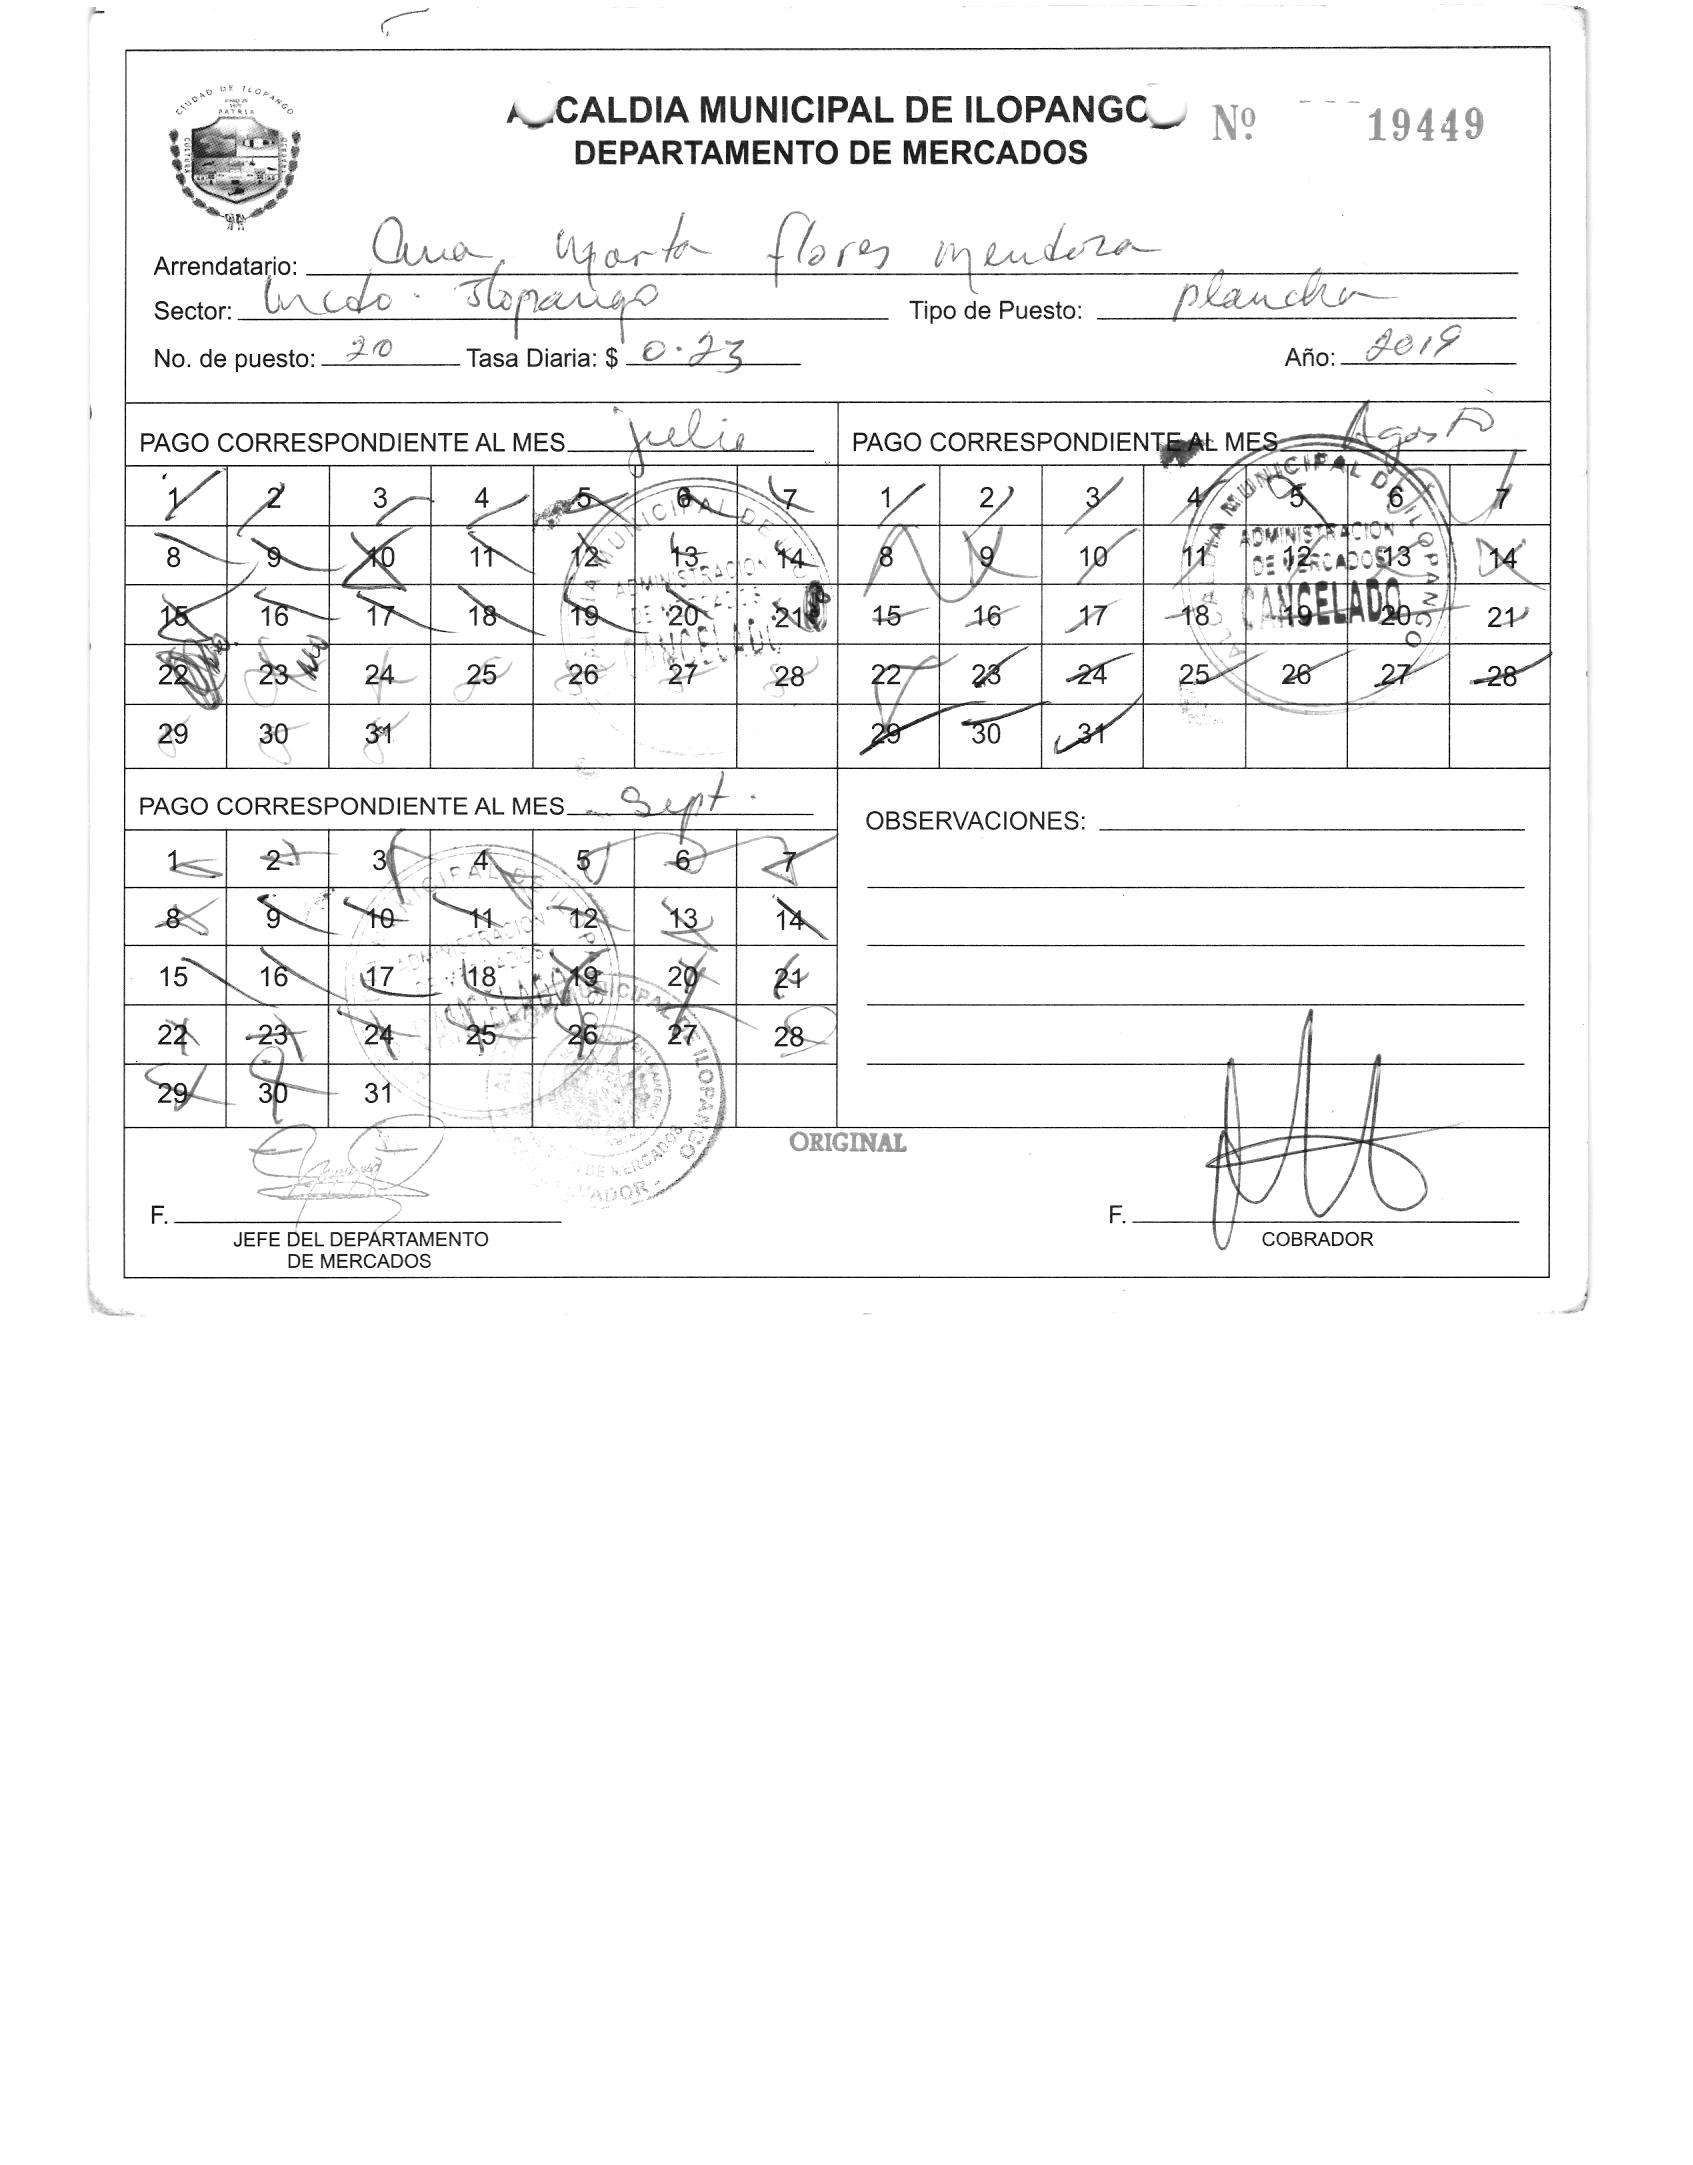 CIUDAD DE ILOPANGO
PATRIA
CULTURA
ALCALDIA MUNICIPAL DE ILOPANGO
Nº 19449
DEPARTAMENTO DE MERCADOS
Arrendatario: Ana Marta flores mendoza
Sector: Mcdo. Ilopango Tipo de Puesto: plancha
No. de puesto: 20 Tasa Diaria: $ 0.23 Año: 2019
PAGO CORRESPONDIENTE AL MES julio
1 2 3 4 5 6 7
8 9 10 11 12 13 14
15 16 17 18 19 20 21
22 23 24 25 26 27 28
29 30 31
ALCALDIA MUNICIPAL DE ILOPANGO
ADMINISTRACION
DE MERCADOS
CANCELADO
PAGO CORRESPONDIENTE AL MES Agosto
1 2 3 4 5 6 7
8 9 10 11 12 13 14
15 16 17 18 19 20 21
22 23 24 25 26 27 28
29 30 31
ALCALDIA MUNICIPAL DE ILOPANGO
ADMINISTRACION
DE MERCADOS
CANCELADO
PAGO CORRESPONDIENTE AL MES Sept.
1 2 3 4 5 6 7
8 9 10 11 12 13 14
15 16 17 18 19 20 21
22 23 24 25 26 27 28
29 30 31
MUNICIPAL DE ILOPANGO
ADMINISTRACION
DE MERCADOS
CANCELADO
MUNICIPAL DE ILOPANGO
DE MERCADOS
OBSERVACIONES:
ORIGINAL
F.
JEFE DEL DEPARTAMENTO
DE MERCADOS
F.
COBRADOR